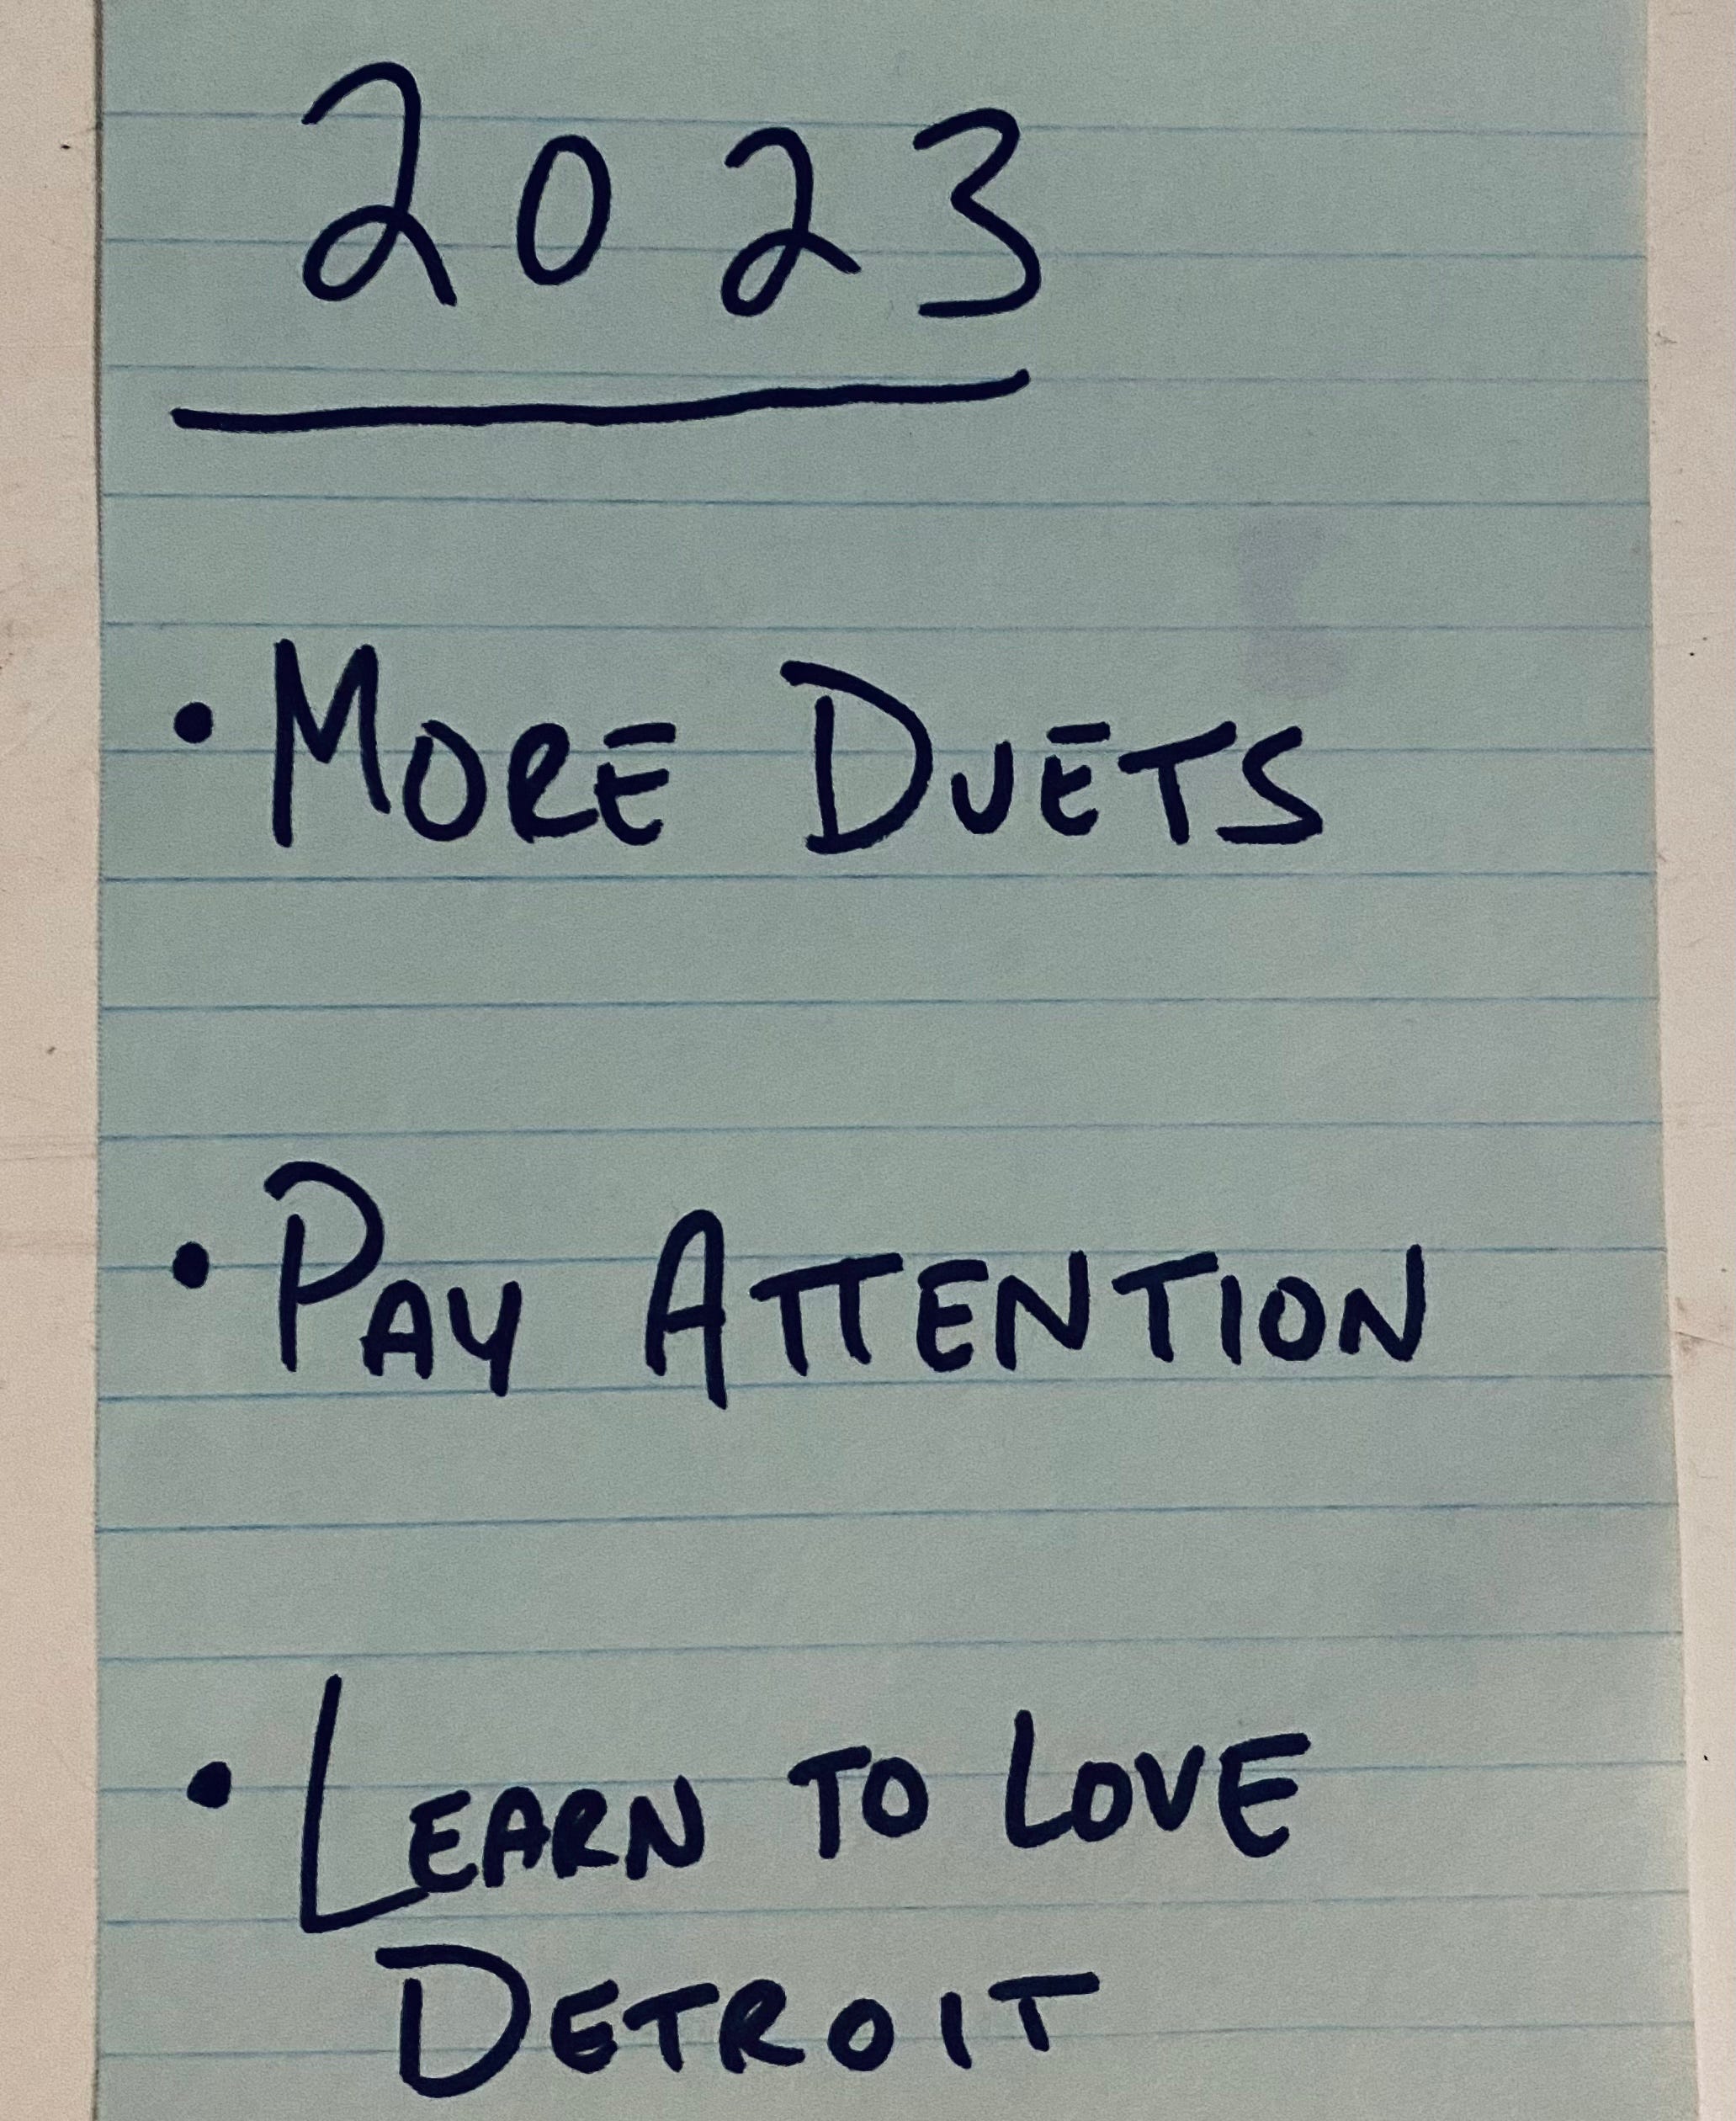 2023
• MORE DUETS
• PAY ATTENTION
• LEARN TO LOVE
DETROIT